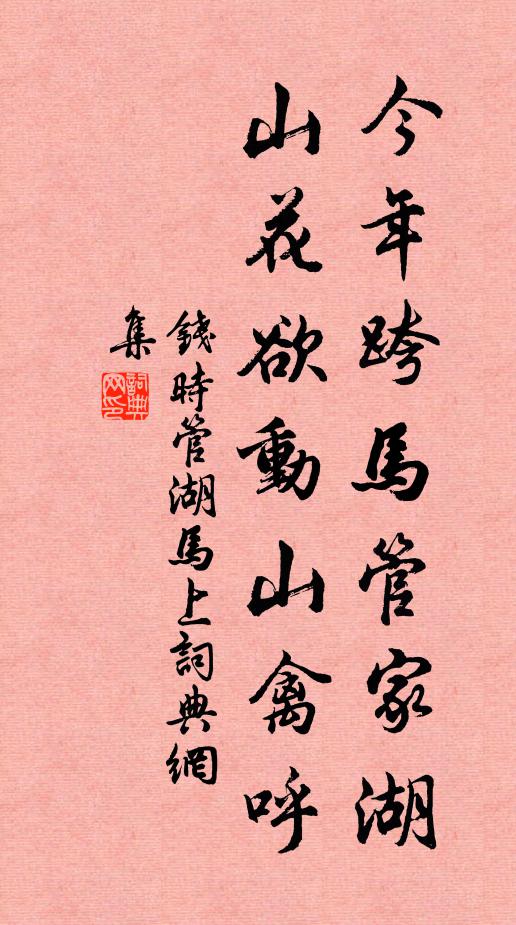 今年跨馬管家湖
山花欲動山禽呼
錢時管湖馬上詞典網
集
詞典网印